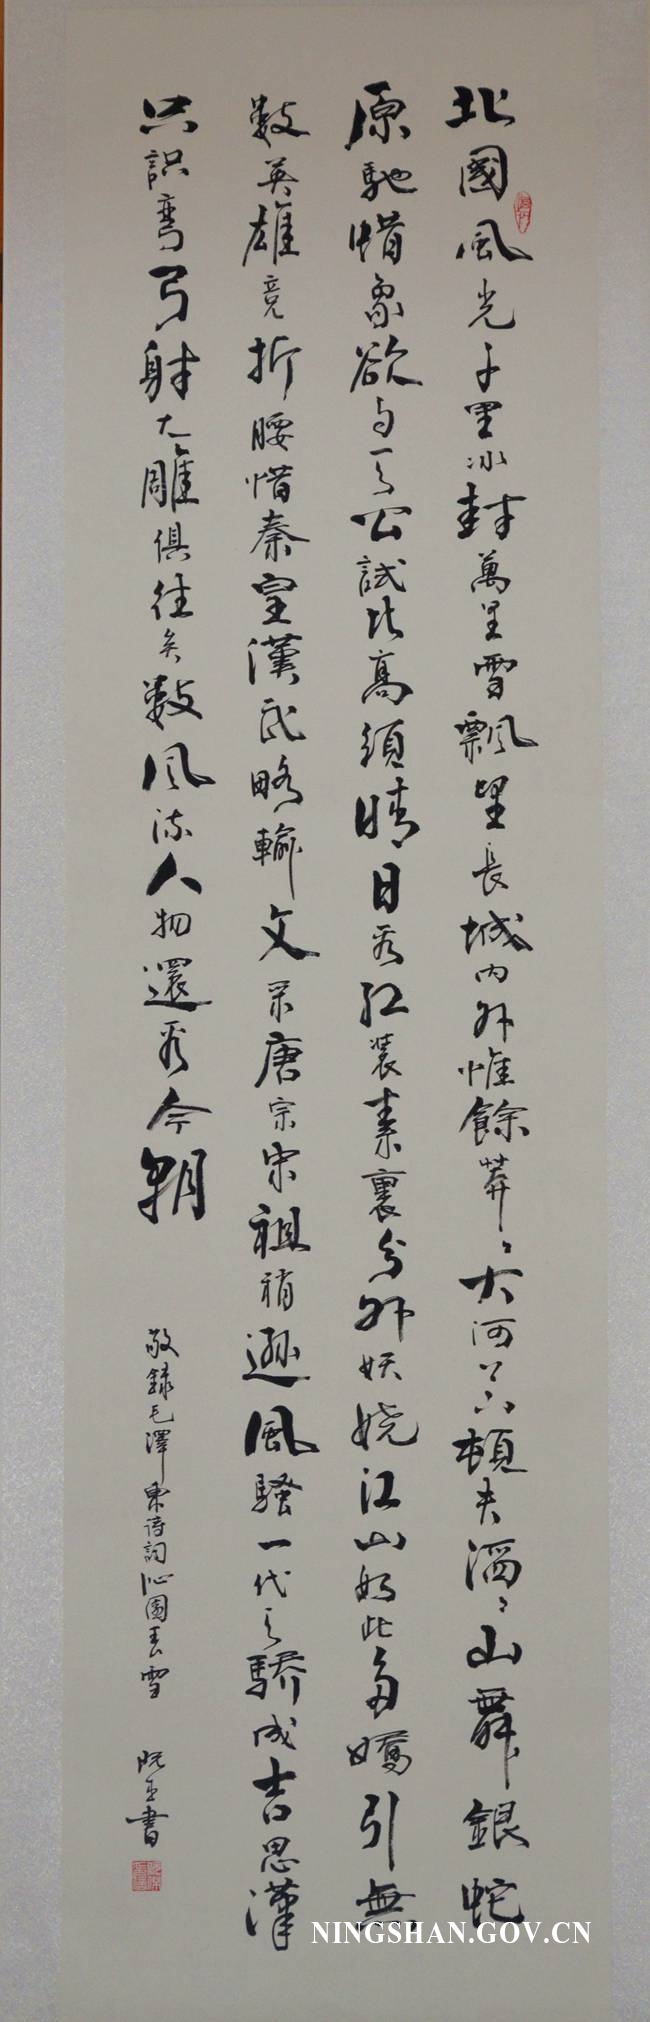 北國風光千里冰封萬里雪飄望長城内外惟餘莽〻大河上下頓失滔〻山舞銀蛇
原馳蜡象欲与天公試比高須晴日看红装素裹分外妖娆江山如此多嬌引無
數英雄竞折腰惜秦皇漢武略輸文采唐宗宋祖稍遜風騷一代天驕成吉思漢
只識弯弓射大雕俱往矣數风流人物還看今朝
敬録毛澤東诗詞沁園春雪
阮書
NINGSHAN.GOV.CN